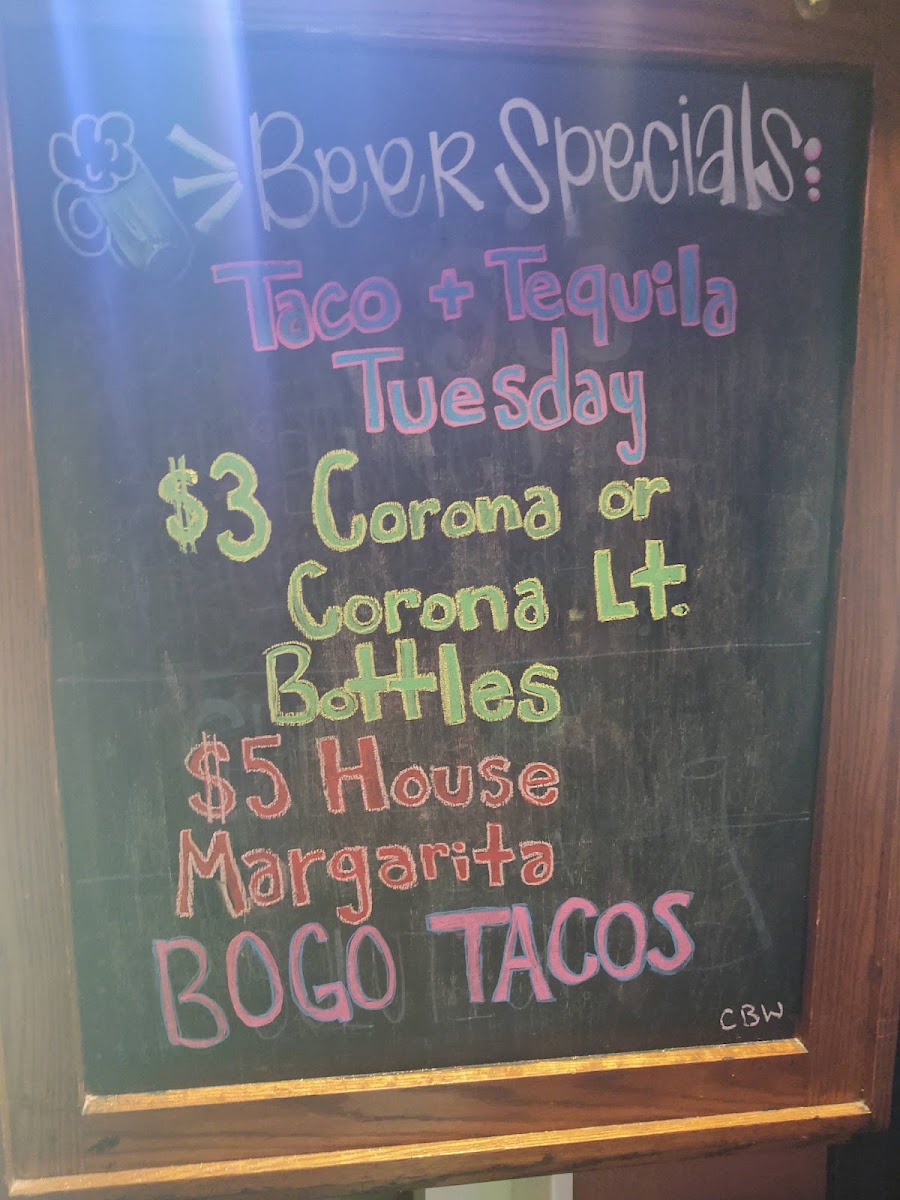 Beer Specials:
Taco + Tequila
Tuesday
$3 Corona or
Corona Lt.
Bottles
$5 House
Margarita
BOGO TACOS
CBW